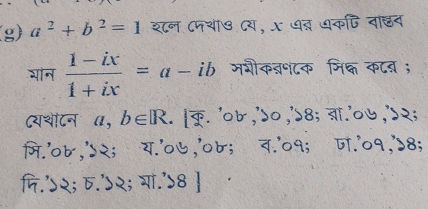 (g) a² + b² = 1 হলে দেখাও যে, x এর একটি বাস্তব
মান \frac{1 - ix}{1 + ix} = a - ib সমীকরণটিকে সিদ্ধ করে ;
যেখানে a, b∈ℝ. [কু. '০৮,'১০,'১৪; রা.'০৬,'১২;
সি.'০৮,'১২; য.'০৬,'০৮; ব.'০৭; ঢা.'০৭,'১৪;
দি.'১২; চ.'১২; মা.'১৪ ]